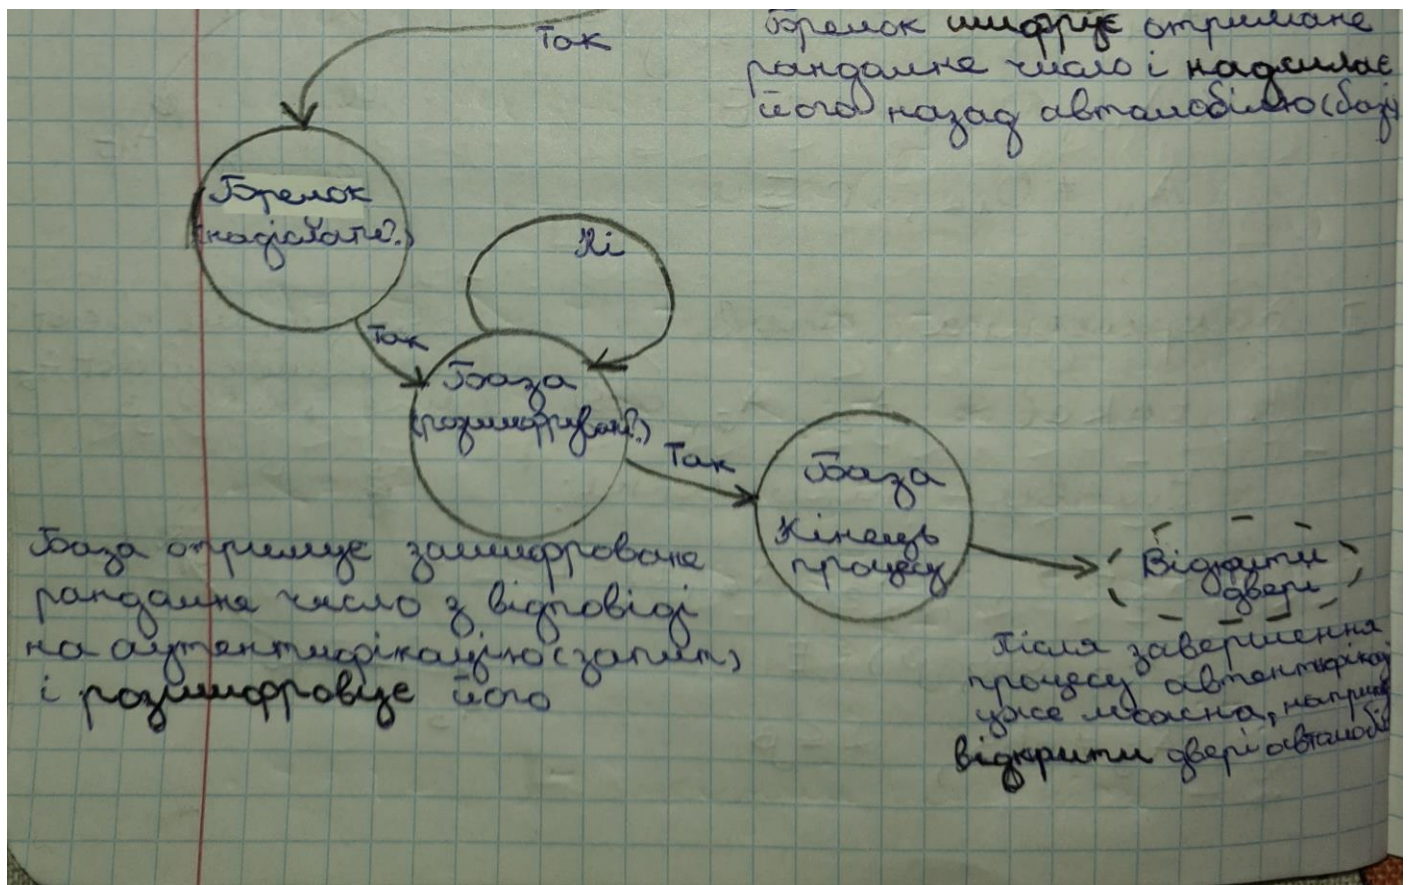 Так
Брелок шифрує отримане
рандомне число і надсилає
його назад автомобілю (базі
Брелок
(надіслати?)
Ні
Так
База
(розшифрувати?)
Так
База
Кінець
процесу
Відкрити
двері
База отримує зашифроване
рандомне число з відповіді
на аутентифікацію (запит)
і розшифровує його
Після завершення
процесу автентифікаці
уже можна, наприкл
відкрити двері автомобі